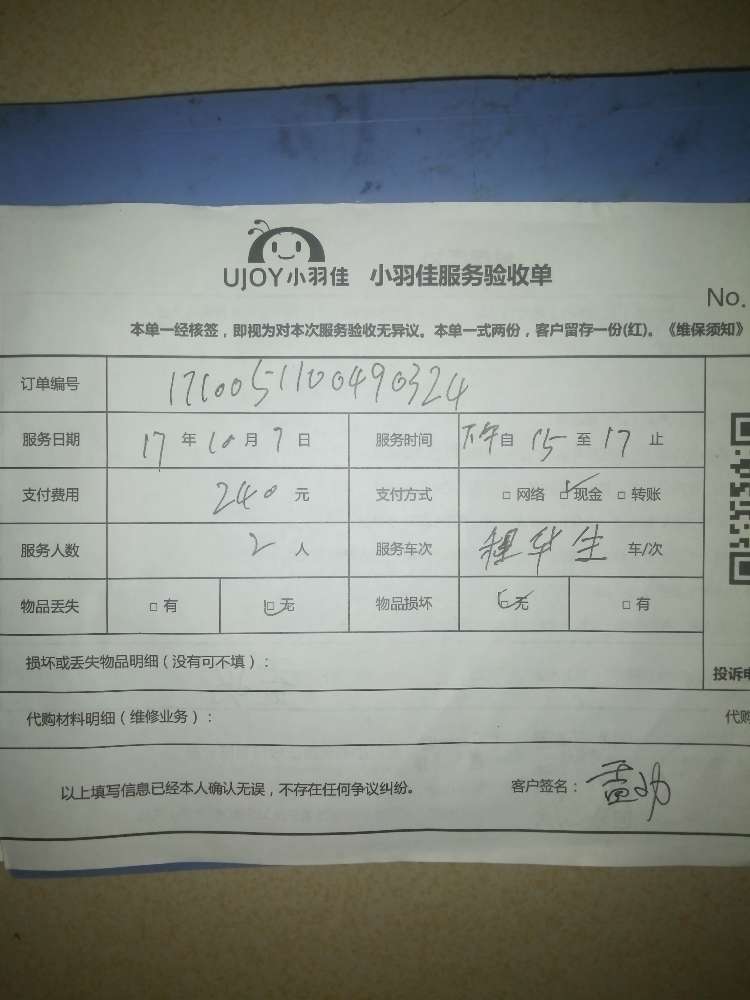 UJOY小羽佳 小羽佳服务验收单
No.
本单一经核签，即视为对本次服务验收无异议。本单一式两份，客户留存一份(红)。《维保须知》
订单编号 1710051100490324
服务日期 17 年 10 月 7 日 服务时间 下午 自 15 至 17 止
支付费用 240 元 支付方式 □ 网络 ☑ 现金 □ 转账
服务人数 2 人 服务车次 车/次
物品丢失 □ 有 ☑ 无 物品损坏 ☑ 无 □ 有
损坏或丢失物品明细（没有可不填）：
投诉电
代购材料明细（维修业务）：
代购
以上填写信息已经本人确认无误，不存在任何争议纠纷。 客户签名：